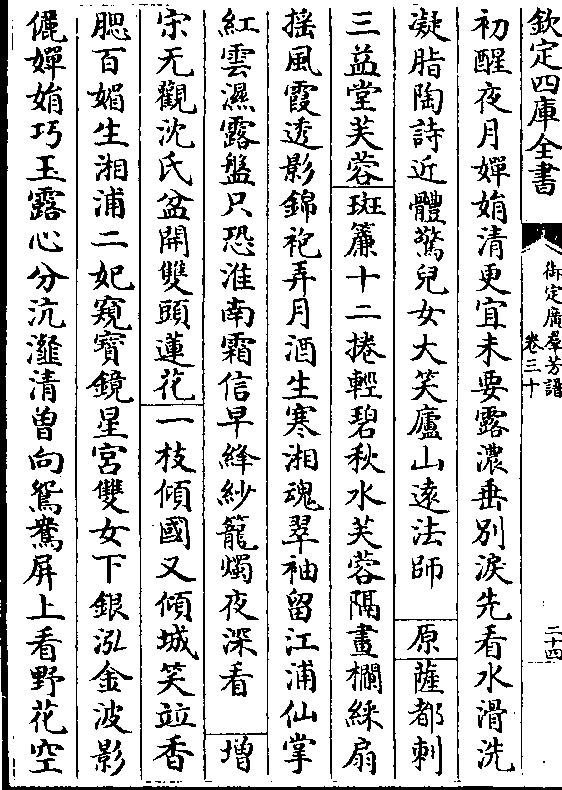 欽定四庫全書
御定廣羣芳譜
卷三十
二十四
初醒夜月嬋娟清更宜未要露濃垂別淚先看水滑洗
凝脂陶詩近體驚兒女大笑廬山遠法師　原薩都刺
三益堂芙蓉斑簾十二捲輕碧秋水芙蓉隔畫欄綵扇
摇風霞透影錦袍弄月酒生寒湘魂翠袖留江浦仙掌
紅雲濕露盤只恐淮南霜信早絳紗籠燭夜深看　增
宋无觀沈氏盆開雙頭蓮花一枝傾國又傾城笑竝香
腮百媚生湘浦二妃窺寶鏡星宮雙女下銀泓金波影
儷嬋娟巧玉露心分沆瀣清曾向鴛鴦屏上看野花空